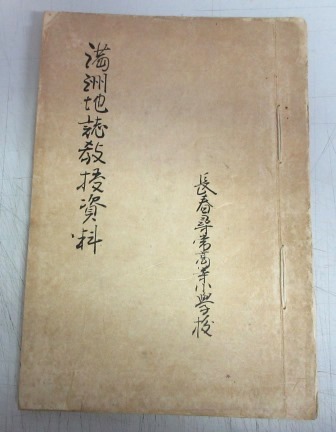 満洲地誌教授資料
長春尋常高等小學校